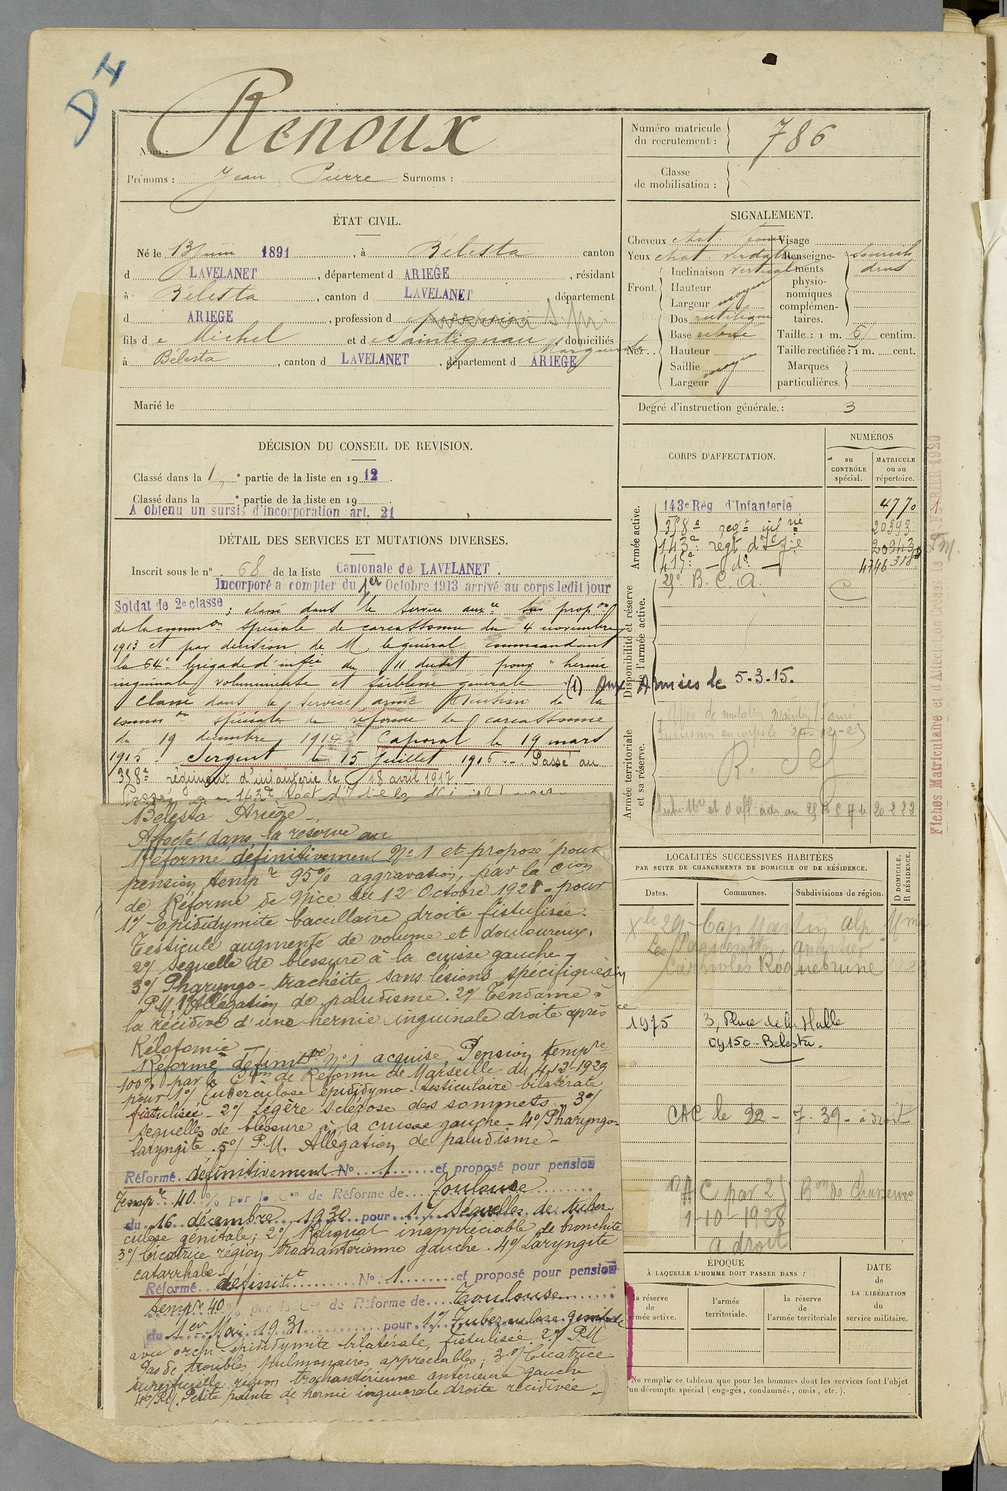 D I
Renoux
Nom :
Prénoms : Jean Pierre Surnoms :
ÉTAT CIVIL.
Né le 13 Juin 1891, à Bélesta canton
d LAVELANET, département d ARIEGE, résidant
à Bélesta, canton d LAVELANET, département
d ARIEGE, profession d
fils de Michel et d Saintignan Marguerite, domiciliés
à Bélesta, canton d LAVELANET, département d ARIEGE
Marié le
DÉCISION DU CONSEIL DE REVISION.
Classé dans la 1 e partie de la liste en 1912.
Classé dans la e partie de la liste en 19
A obtenu un sursis d'incorporation art. 21
DÉTAIL DES SERVICES ET MUTATIONS DIVERSES.
Inscrit sous le n° 68 de la liste Cantonale de LAVELANET.
Incorporé à compter du 1er Octobre 1913 arrivé au corps ledit jour
Soldat de 2e classe ; classé dans le service auxre sur propon
de la common spéciale de carcassonne du 4 novembre
1913 et par décision de M le général commandant
la 64e brigade d'infie du 11 dudit pour " hernie
inguinale volumineuse et faiblesse générale (1) Aux Armées le 5.3.15.
Classé dans le service armé Décision de la
common spéciale de réforme de carcassonne
du 19 décembre 1914 Caporal le 19 mars
1915 Sergent le 15 Juillet 1915 - Passé au
358e régiment d'infanterie le 18 avril 1917
Bélesta Ariège
Affecté dans la réserve au
Réformé définitivement N° 1 et proposé pour
pension tempre 95% aggravation, par la Cion
de Réforme de Nice du 12 Octobre 1928 - pour
1°/ Epididymite bacillaire droite fistulisée.
Testicule augmenté de volume et douloureux.
2°/ Sequelle de blessure à la cuisse gauche
3°/ Pharyngo-trachéite sans lésions spécifiques
P.M. 1°/ Allégation de paludisme. 2°/ Tendance à
la récidive d'une hernie inguinale droite après
Kélotomie -
Réformé définitve N° 1 acquise, Pension tempre
100% par la Cion de Réforme de Marseille du 4-12-1929
pour 1°/ Tuberculose épididymo testiculaire bilatérale
fistulisée - 2°/ Légère Sclérose des sommets - 3°/
Sequelles de blessure à la cuisse gauche - 4°/ Pharyngo-
laryngite. 5°/ P.M. Allégation de paludisme -
Réformé définitivement N° 1 et proposé pour pension
Tempre 40 % par la Con de Réforme de Toulouse
du 16 décembre 1930 pour 1°/ Séquelles de tuber
culose génitale; 2°/ Reliquat inappréciable de bronchite
3°/ Cicatrice région trochantérienne gauche. 4°/ Laryngite
catarrhale
Réformé définitt N° 1 et proposé pour pension
tempre 40 % par la Con de Réforme de Toulouse
du 1er Mai 1931 pour 1°/ Tuberculose génitale
avec orchi-épididymite bilatérale, fistulisée. 2°/ P.M.
Pas de troubles pulmonaires appréciables; 3°/ Cicatrice
superficielle région trochantérienne antérieure gauche
4°/ P.M. Petite pointe de hernie inguinale droite récidivée -
Numéro matricule du recrutement : 786
Classe de mobilisation :
SIGNALEMENT.
Cheveux chat
Yeux chat. verdatre
Front. Inclinaison vertical
Hauteur
Largeur moyen
Nez. Dos rectiligne
Base
Hauteur
Saillie moy
Largeur
Visage
Renseignements physionomiques complémentaires.
Taille : 1 m. 61 centim.
Taille rectifiée : 1 m. cent.
Marques particulières.
Degré d'instruction générale. : 3
CORPS D'AFFECTATION.
NUMÉROS
au CONTRÔLE spécial.
MATRICULE ou au répertoire.
Armée active.
143e Rég d'Infanterie 4770
358e regt infie 20393
143e regt d'Infie
417e - do -
28e B. C. A.
Disponibilité et réserve de l'armée active.
Armée territoriale et sa réserve.
Fiches Matriculaire et d'Affection
LOCALITÉS SUCCESSIVES HABITÉES
PAR SUITE DE CHANGEMENTS DE DOMICILE OU DE RÉSIDENCE.
Dates. Communes. Subdivisions de région.
D DOMICILE. R RÉSIDENCE.
Cap Martin Alp. Mm
Roquebrune
1975 3, Place de la Halle
09150 - Bélesta.
CAC le 22 - 7. 39 - à droit
A C par 25 Bon de Chasseurs
1 - 10 - 1928
a droit
ÉPOQUE
À LAQUELLE L'HOMME DOIT PASSER DANS :
la réserve de l'armée active.
l'armée territoriale.
la réserve de l'armée territoriale
DATE de LA LIBÉRATION du service militaire.
Ne remplir ce tableau que pour les hommes dont les services font l'objet
d'un décompte spécial (engagés, condamnés, omis, etc.).